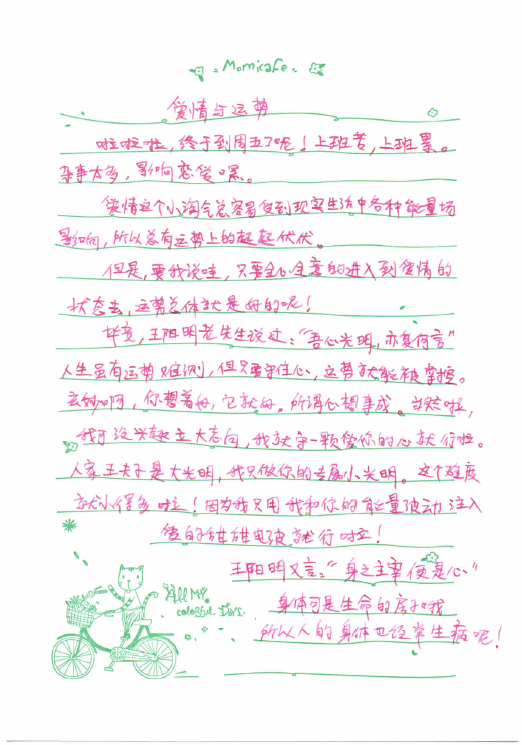 Momicafe
爱情与运势
啦啦啦，终于到周五了呢！上班苦，上班累。
杂事太多，影响恋爱嘿。
爱情这个小淘气总容易受到现实生活中各种能量场
影响，所以总有运势上的起起伏伏。
但是，要我说哇，只要全心全意的进入到爱情的
状态去，运势总体就是好的呢！
毕竟，王阳明老先生说过：“吾心光明，亦复何言”
人生虽有运势难测，但只要守住心，运势就能被掌控。
玄妙啊，你想着好，它就好。所谓心想事成。当然啦，
我可没兴趣立大志向，我就守一颗爱你的心就行啦。
人家王夫子是大光明，我只做你的专属小光明。这个难度
就小得多啦！因为我只用我和你的能量波动注入
爱的甜甜电波就行啦！
王阳明又言：“身之主宰便是心”
身体可是生命的房子哦
所以人的身体也经常生病呢！
All My
colorful Days.